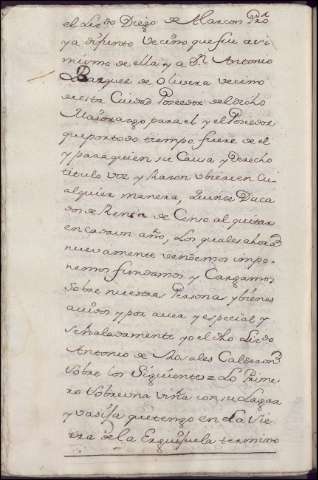 el Licdo Diego de Alarcon Pbro
ya difunto vecino que fue asi
mismo de ella y a Dn Antonio
Vazquez de Olivera vecino
de esta Ciudad Poseedor del dicho
Maiorazgo para el y el Poseedor
que por todo tiempo fuere de el
y para quien su Causa y derecho
titulo voz y Razon ubiere en Cu
alquier manera, Quince Duca
dos de Renta de Censo al quitar
en cada un año, Los quales ahora
nuevamente vendemos impo
nemos fundamos y Cargamos
sobre nuestras Personas y bienes
avidos y por aver y especial y
señaladamente yo el dho Licdo
Antonio de Morales Calderon
sobre los Siguientes = Lo Prime
ro sobre una viña con su Lagar
y vasija que tengo en La Sie
rra de la termino